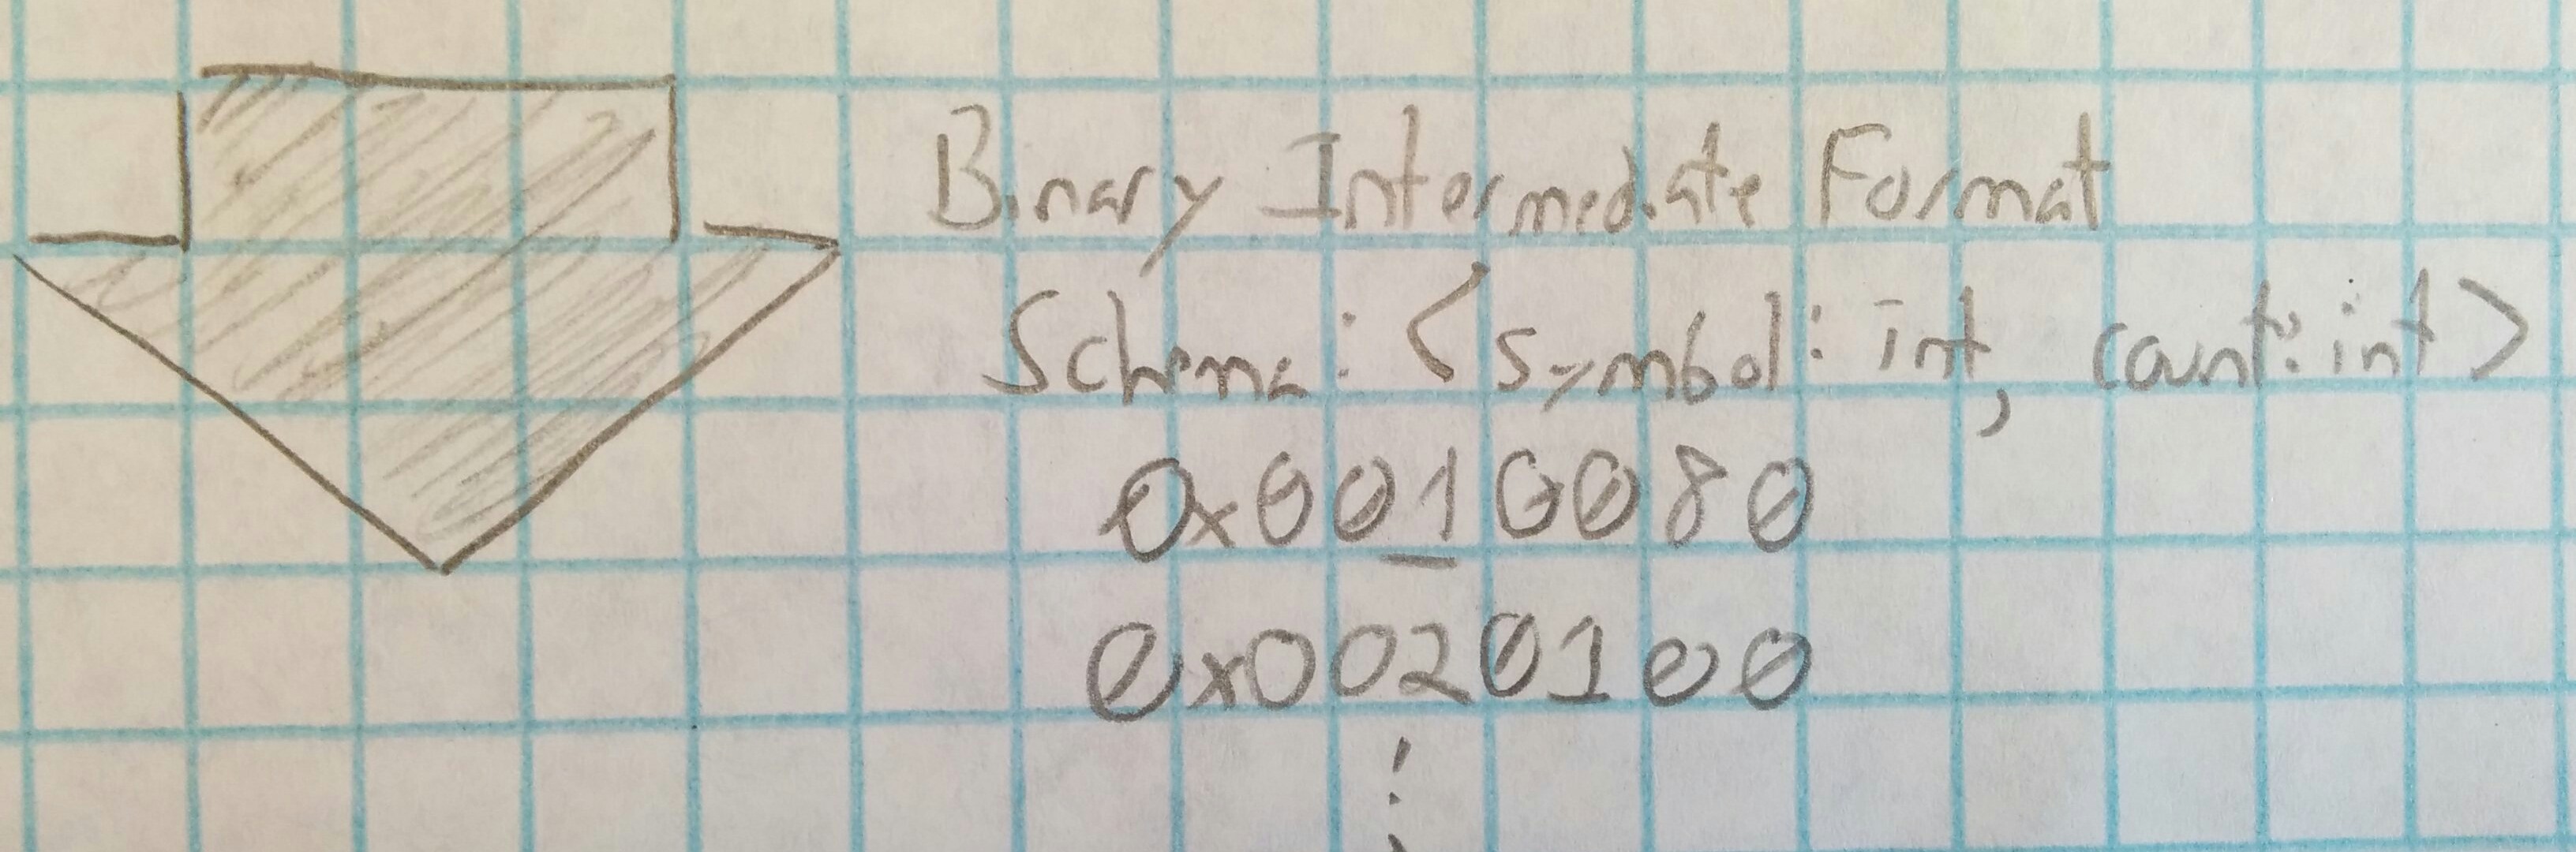 Binary Intermediate Format
Schema: <symbol: int, count: int>
0x0010080
0x0020100